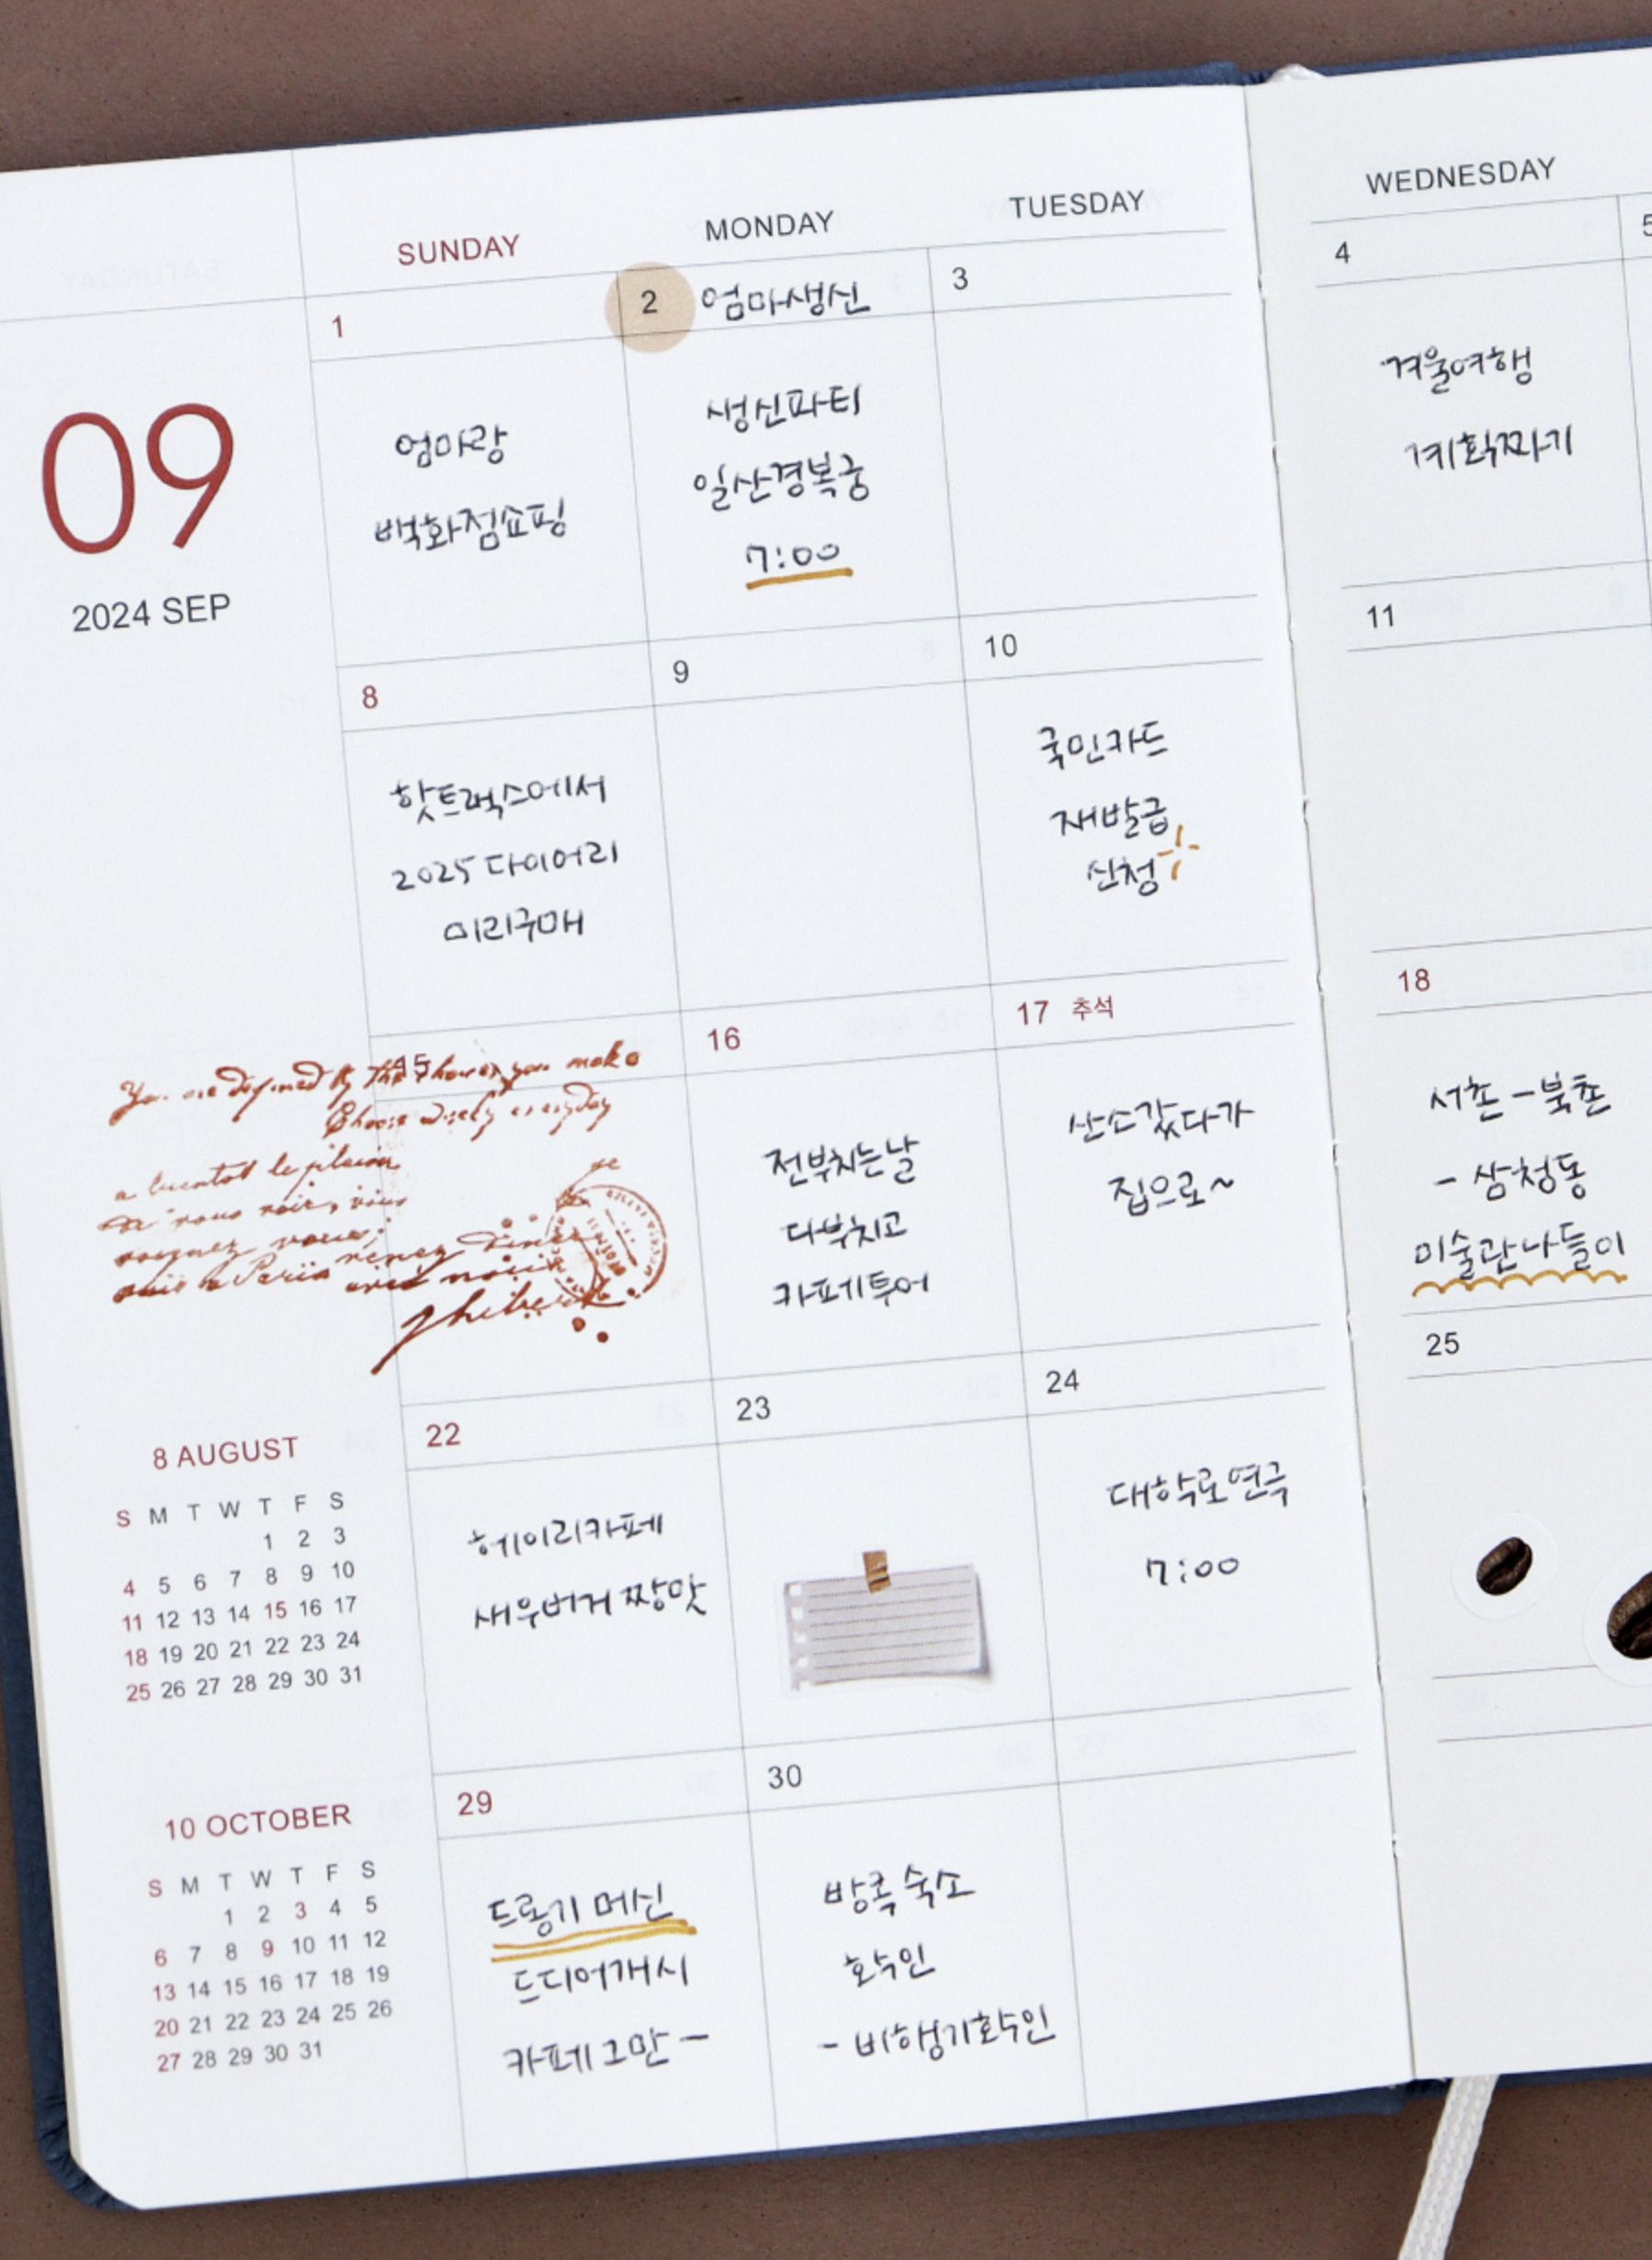 SUNDAY MONDAY TUESDAY WEDNESDAY
09
2024 SEP
1
엄마랑
백화점쇼핑
2 엄마생신
생신파티
일산경복궁
7:00
3
4
겨울여행
계획짜기
5
8
핫트랙스에서
2025 다이어리
미리구매
9
10
국민카드
재발급
신청
11
15
You are defined by the choices you make
Choose wisely everyday
a bientot le plaisir
de vous voir, vous
venez diner
suis a Paris
avec nous
16
전부치는날
다부치고
카페투어
17 추석
산소갔다가
집으로~
18
서촌 - 북촌
- 삼청동
미술관나들이
22
헤이리카페
새우버거 짱맛
23
24
대학로연극
7:00
25
29
드롱기 메신
드디어개시
카페그만 -
30
방콕 숙소
확인
- 비행기확인
8 AUGUST
S M T W T F S
1 2 3
4 5 6 7 8 9 10
11 12 13 14 15 16 17
18 19 20 21 22 23 24
25 26 27 28 29 30 31
10 OCTOBER
S M T W T F S
1 2 3 4 5
6 7 8 9 10 11 12
13 14 15 16 17 18 19
20 21 22 23 24 25 26
27 28 29 30 31